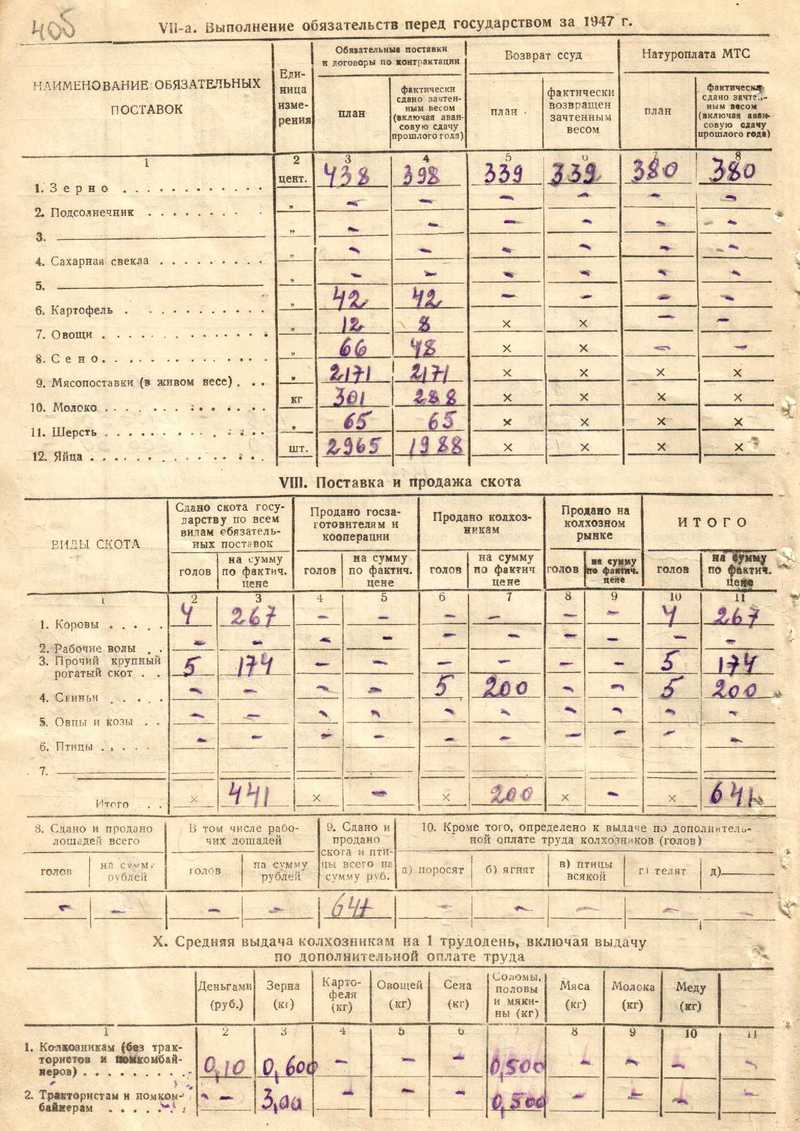 405
VII-а. Выполнение обязательств перед государством за 1947 г.
НАИМЕНОВАНИЕ ОБЯЗАТЕЛЬНЫХ ПОСТАВОК
Единица измерения
Обязательные поставки и договоры по контрактации
Возврат ссуд
Натуроплата МТС
план
фактически сдано зачтенным весом (включая авансовую сдачу прошлого года)
план
фактически возвращен зачтенным весом
план
фактически сдано зачтенным весом (включая авансовую сдачу прошлого года)
1 2 3 4 5 6 7 8
1. Зерно . . . цент. 438 398 339 339 380 380
2. Подсолнечник . . . „ – – – – – –
3. „ – – – – – –
4. Сахарная свекла . . . „ – – – – – –
5. „ – – – – – –
6. Картофель . . . „ 42 42 – – – –
7. Овощи . . . „ 12 8 × × – –
8. Сено . . . „ 66 48 × × – –
9. Мясопоставки (в живом весе) . . . „ 2171 2171 × × × ×
10. Молоко . . . кг 301 288 × × × ×
11. Шерсть . . . „ 65 65 × × × ×
12. Яйца . . . шт. 2965 1988 × × × ×
VIII. Поставка и продажа скота
ВИДЫ СКОТА
Сдано скота государству по всем видам обязательных поставок
Продано госзаготовителям и кооперации
Продано колхозникам
Продано на колхозном рынке
ИТОГО
голов на сумму по фактич. цене голов на сумму по фактич. цене голов на сумму по фактич цене голов на сумму по фактич. цене голов на сумму по фактич. цене
1 2 3 4 5 6 7 8 9 10 11
1. Коровы . . . 4 267 – – – – – – 4 267
2. Рабочие волы . . – – – – – – – – – –
3. Прочий крупный рогатый скот . . 5 174 – – – – – – 5 174
4. Свиньи . . . – – – – 5 200 – – 5 200
5. Овцы и козы . . – – – – – – – – – –
6. Птицы . . . – – – – – – – – – –
7.
Итого . . × 441 × – × 200 × – × 641
8. Сдано и продано лошадей всего
В том числе рабочих лошадей
9. Сдано и продано скота и птицы всего на сумму руб.
10. Кроме того, определено к выдаче по дополнительной оплате труда колхозников (голов)
голов на сумму рублей голов на сумму рублей а) поросят б) ягнят в) птицы всякой г) телят д)
– – – – 641 – – – – –
X. Средняя выдача колхозникам на 1 трудодень, включая выдачу
по дополнительной оплате труда
Деньгами (руб.) Зерна (кг) Картофеля (кг) Овощей (кг) Сена (кг) Соломы, половы и мякины (кг) Мяса (кг) Молока (кг) Меду (кг)
1 2 3 4 5 6 8 9 10 11
1. Колхозникам (без трактористов и помкомбайнеров) . . . 0,10 0,600 – – – 0,500 – – – –
2. Трактористам и помкомбайнерам . . . – 3,00 – – – 0,500 – – – –